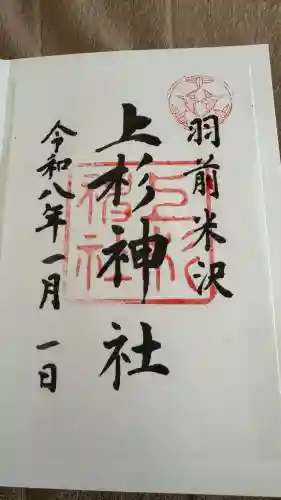 羽前米沢
上杉神社
令和八年一月一日